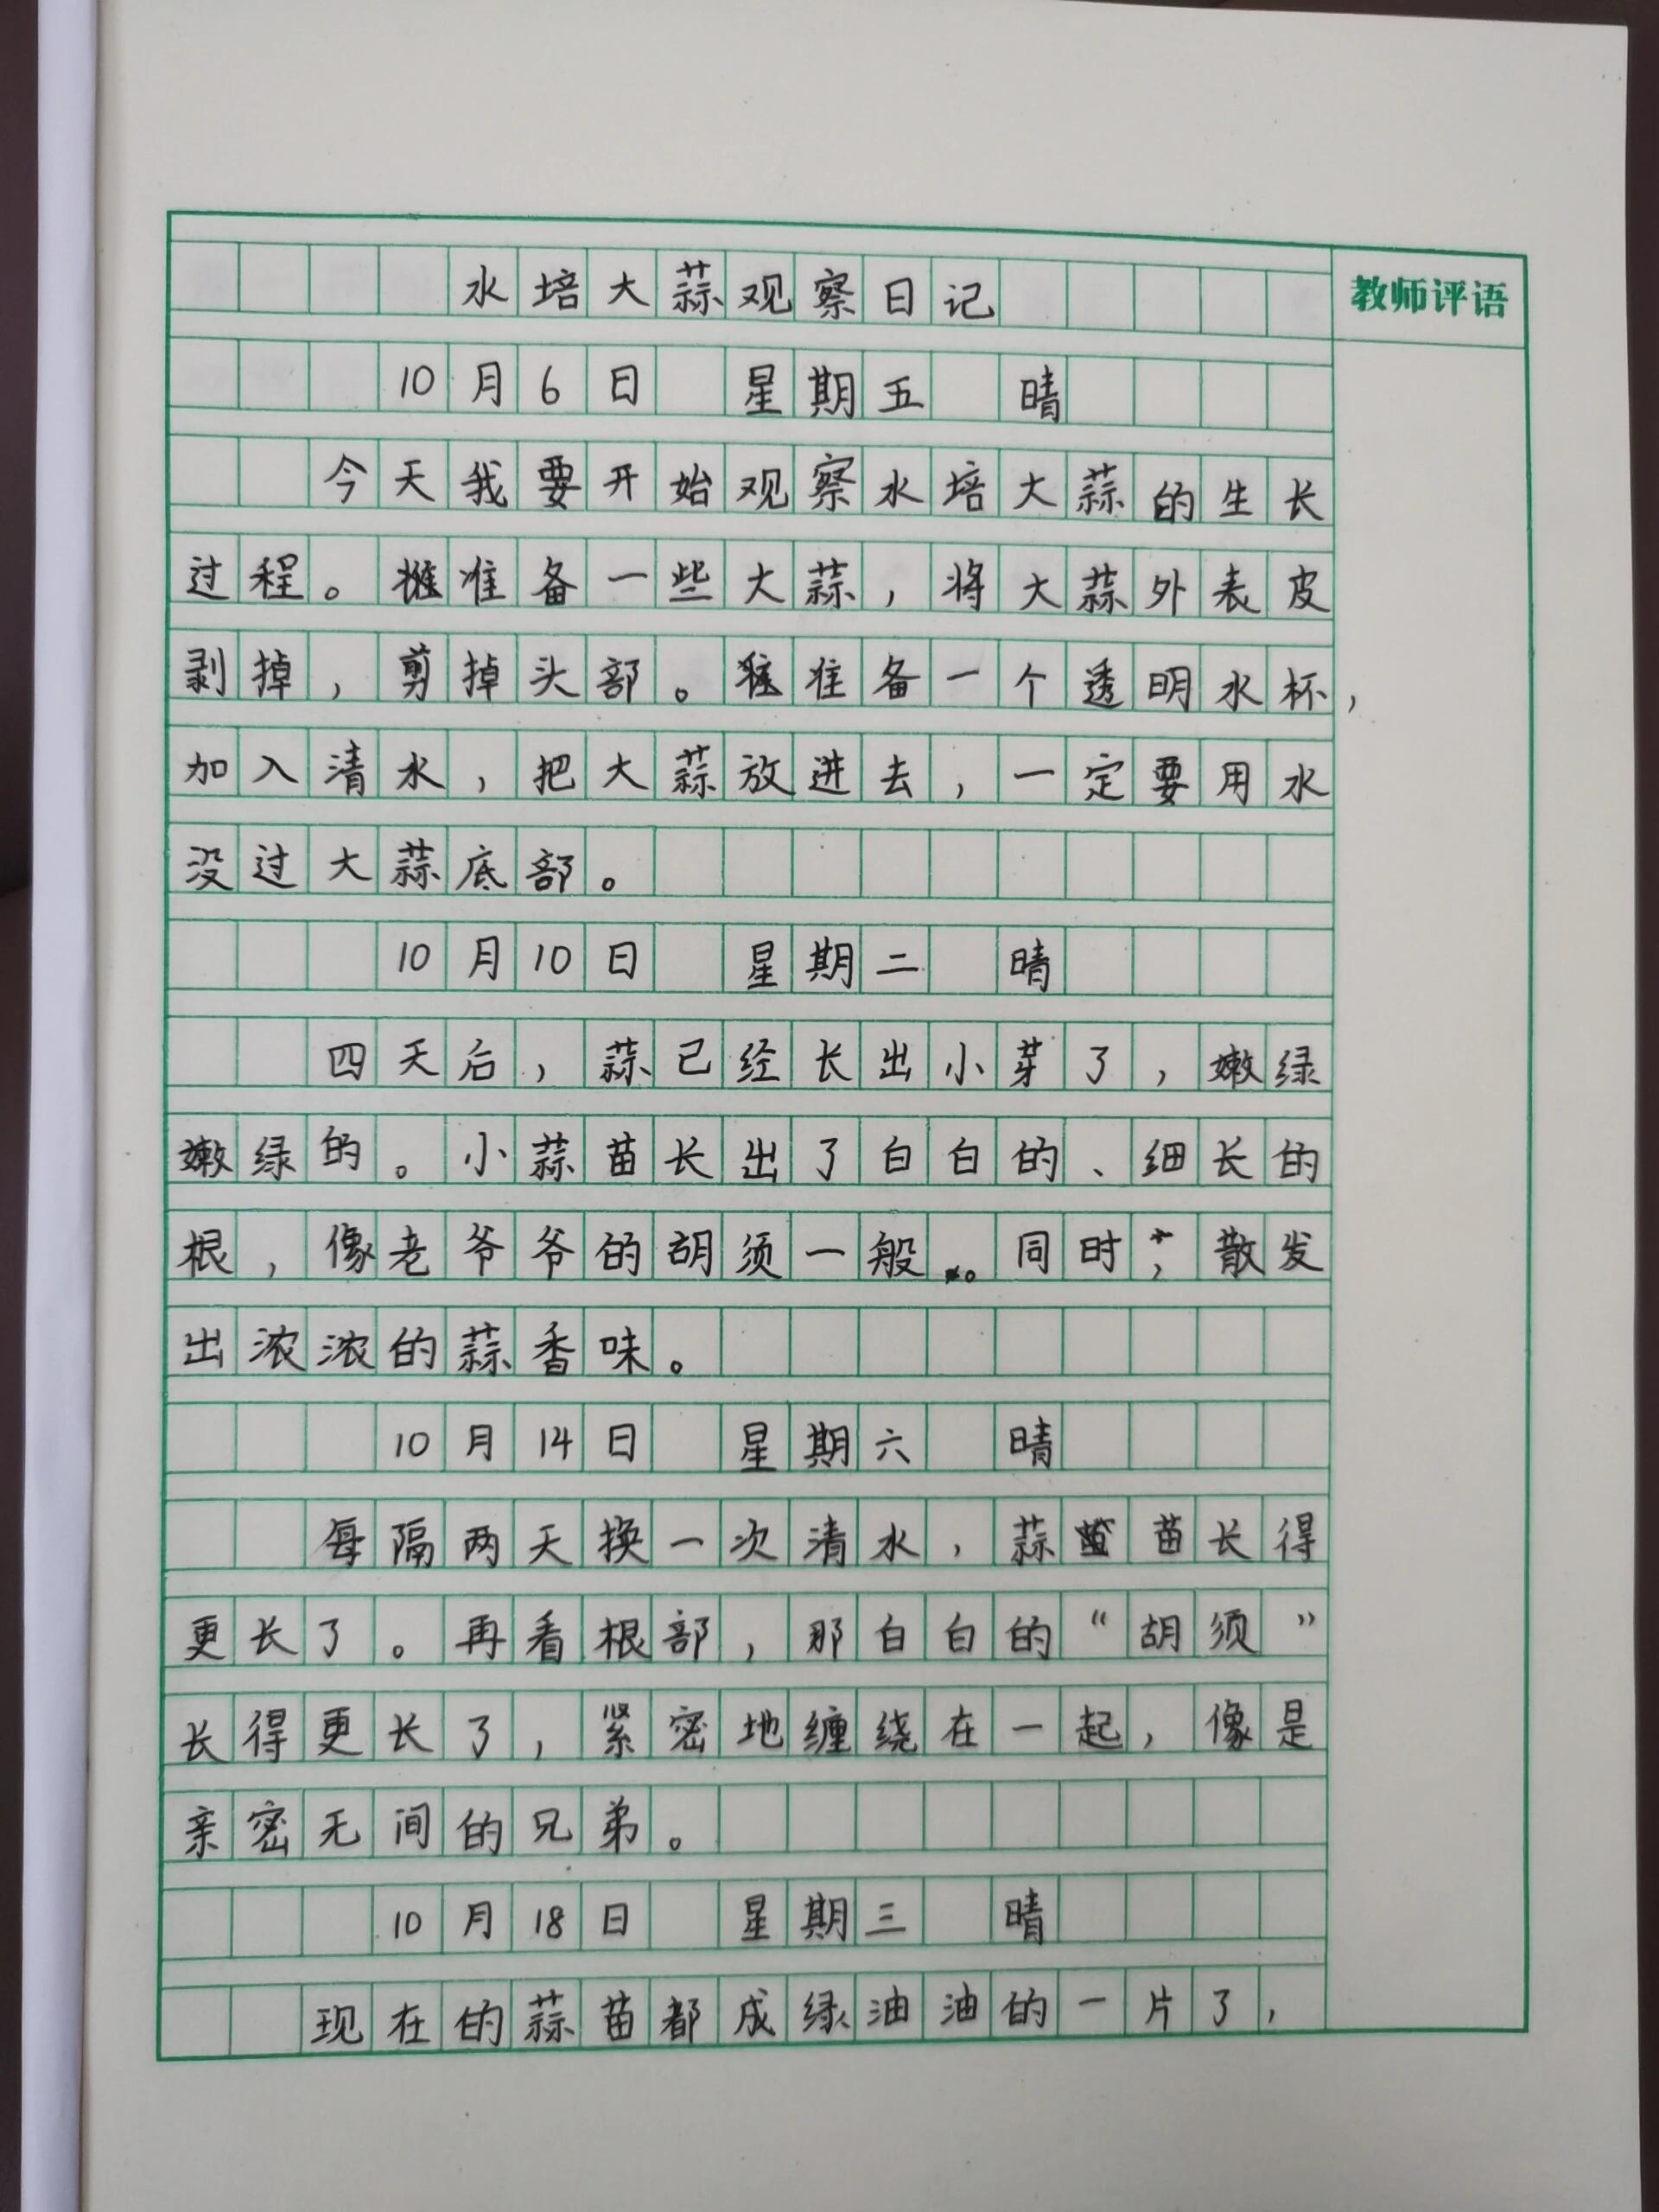 水培大蒜观察日记
教师评语
10月6日 星期五 晴
今天我要开始观察水培大蒜的生长
过程。准备一些大蒜，将大蒜外表皮
剥掉，剪掉头部。准备一个透明水杯，
加入清水，把大蒜放进去，一定要用水
没过大蒜底部。
10月10日 星期二 晴
四天后，蒜已经长出小芽了，嫩绿
嫩绿的。小蒜苗长出了白白的、细长的
根，像老爷爷的胡须一般。同时，散发
出浓浓的蒜香味。
10月14日 星期六 晴
每隔两天换一次清水，蒜苗长得
更长了。再看根部，那白白的“胡须”
长得更长了，紧密地缠绕在一起，像是
亲密无间的兄弟。
10月18日 星期三 晴
现在的蒜苗都成绿油油的一片了，